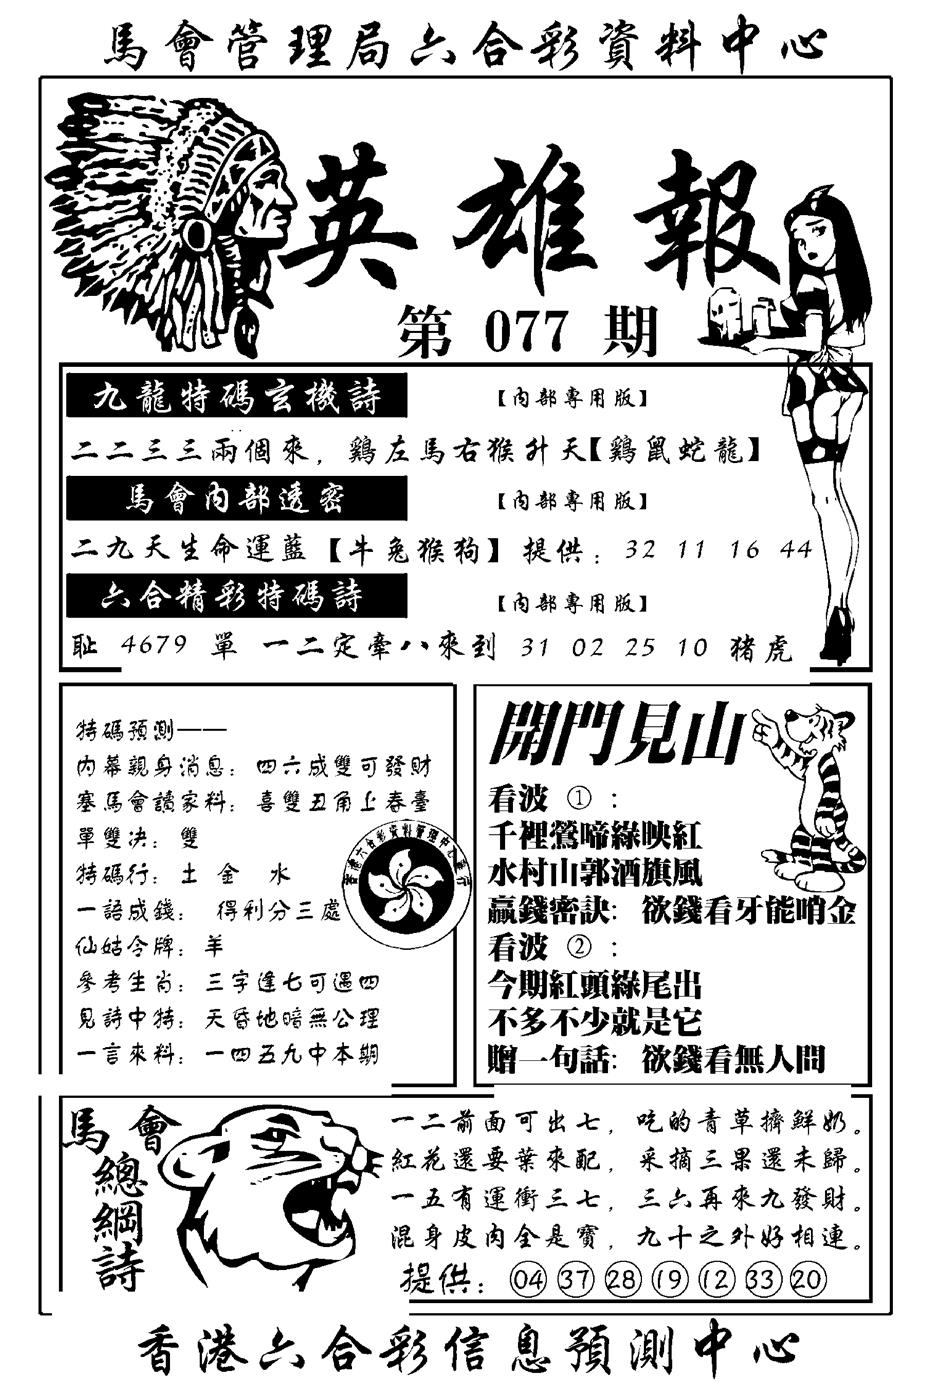 馬會管理局六合彩資料中心
英雄報
第 077 期
九龍特碼玄機詩 【內部專用版】
二二三三兩個來，鷄左馬右猴升天【鷄鼠蛇龍】
馬會內部透密 【內部專用版】
二九天生命運藍【牛兔猴狗】提供：32 11 16 44
六合精彩特碼詩 【內部專用版】
耻 4679 單 一二定牽八來到 31 02 25 10 猪虎
特碼預測——
內幕親身消息：四六成雙可發財
塞馬會讀家料：喜雙丑角上春臺
單雙決：雙
特碼行：土 金 水
一語成錢： 得利分三處
仙姑令牌：羊
參考生肖：三字逢七可遇四
見詩中特：天昏地暗無公理
一言來料：一四五九中本期
香港六合彩資料管理中心發行
開門見山
看波 ①：
千裡鶯啼綠映紅
水村山郭酒旗風
贏錢密訣：欲錢看牙能哨金
看波 ②：
今期紅頭綠尾出
不多不少就是它
贈一句話：欲錢看無人問
馬會
總綱詩
一二前面可出七，吃的青草擠鮮奶。
紅花還要葉來配，采摘三果還未歸。
一五有運衝三七，三六再來九發財。
混身皮肉全是寶，九十之外好相連。
提供：04 37 28 19 12 33 20
香港六合彩信息預測中心